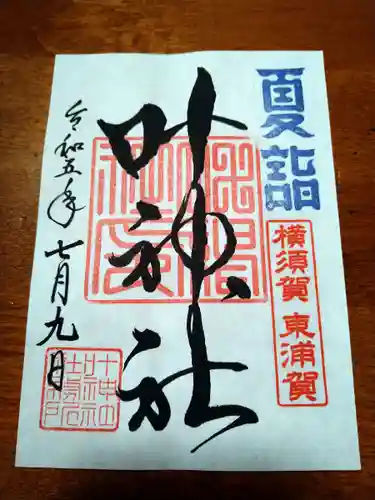 夏詣
横須賀 東浦賀
叶神社
令和五年
七月九日